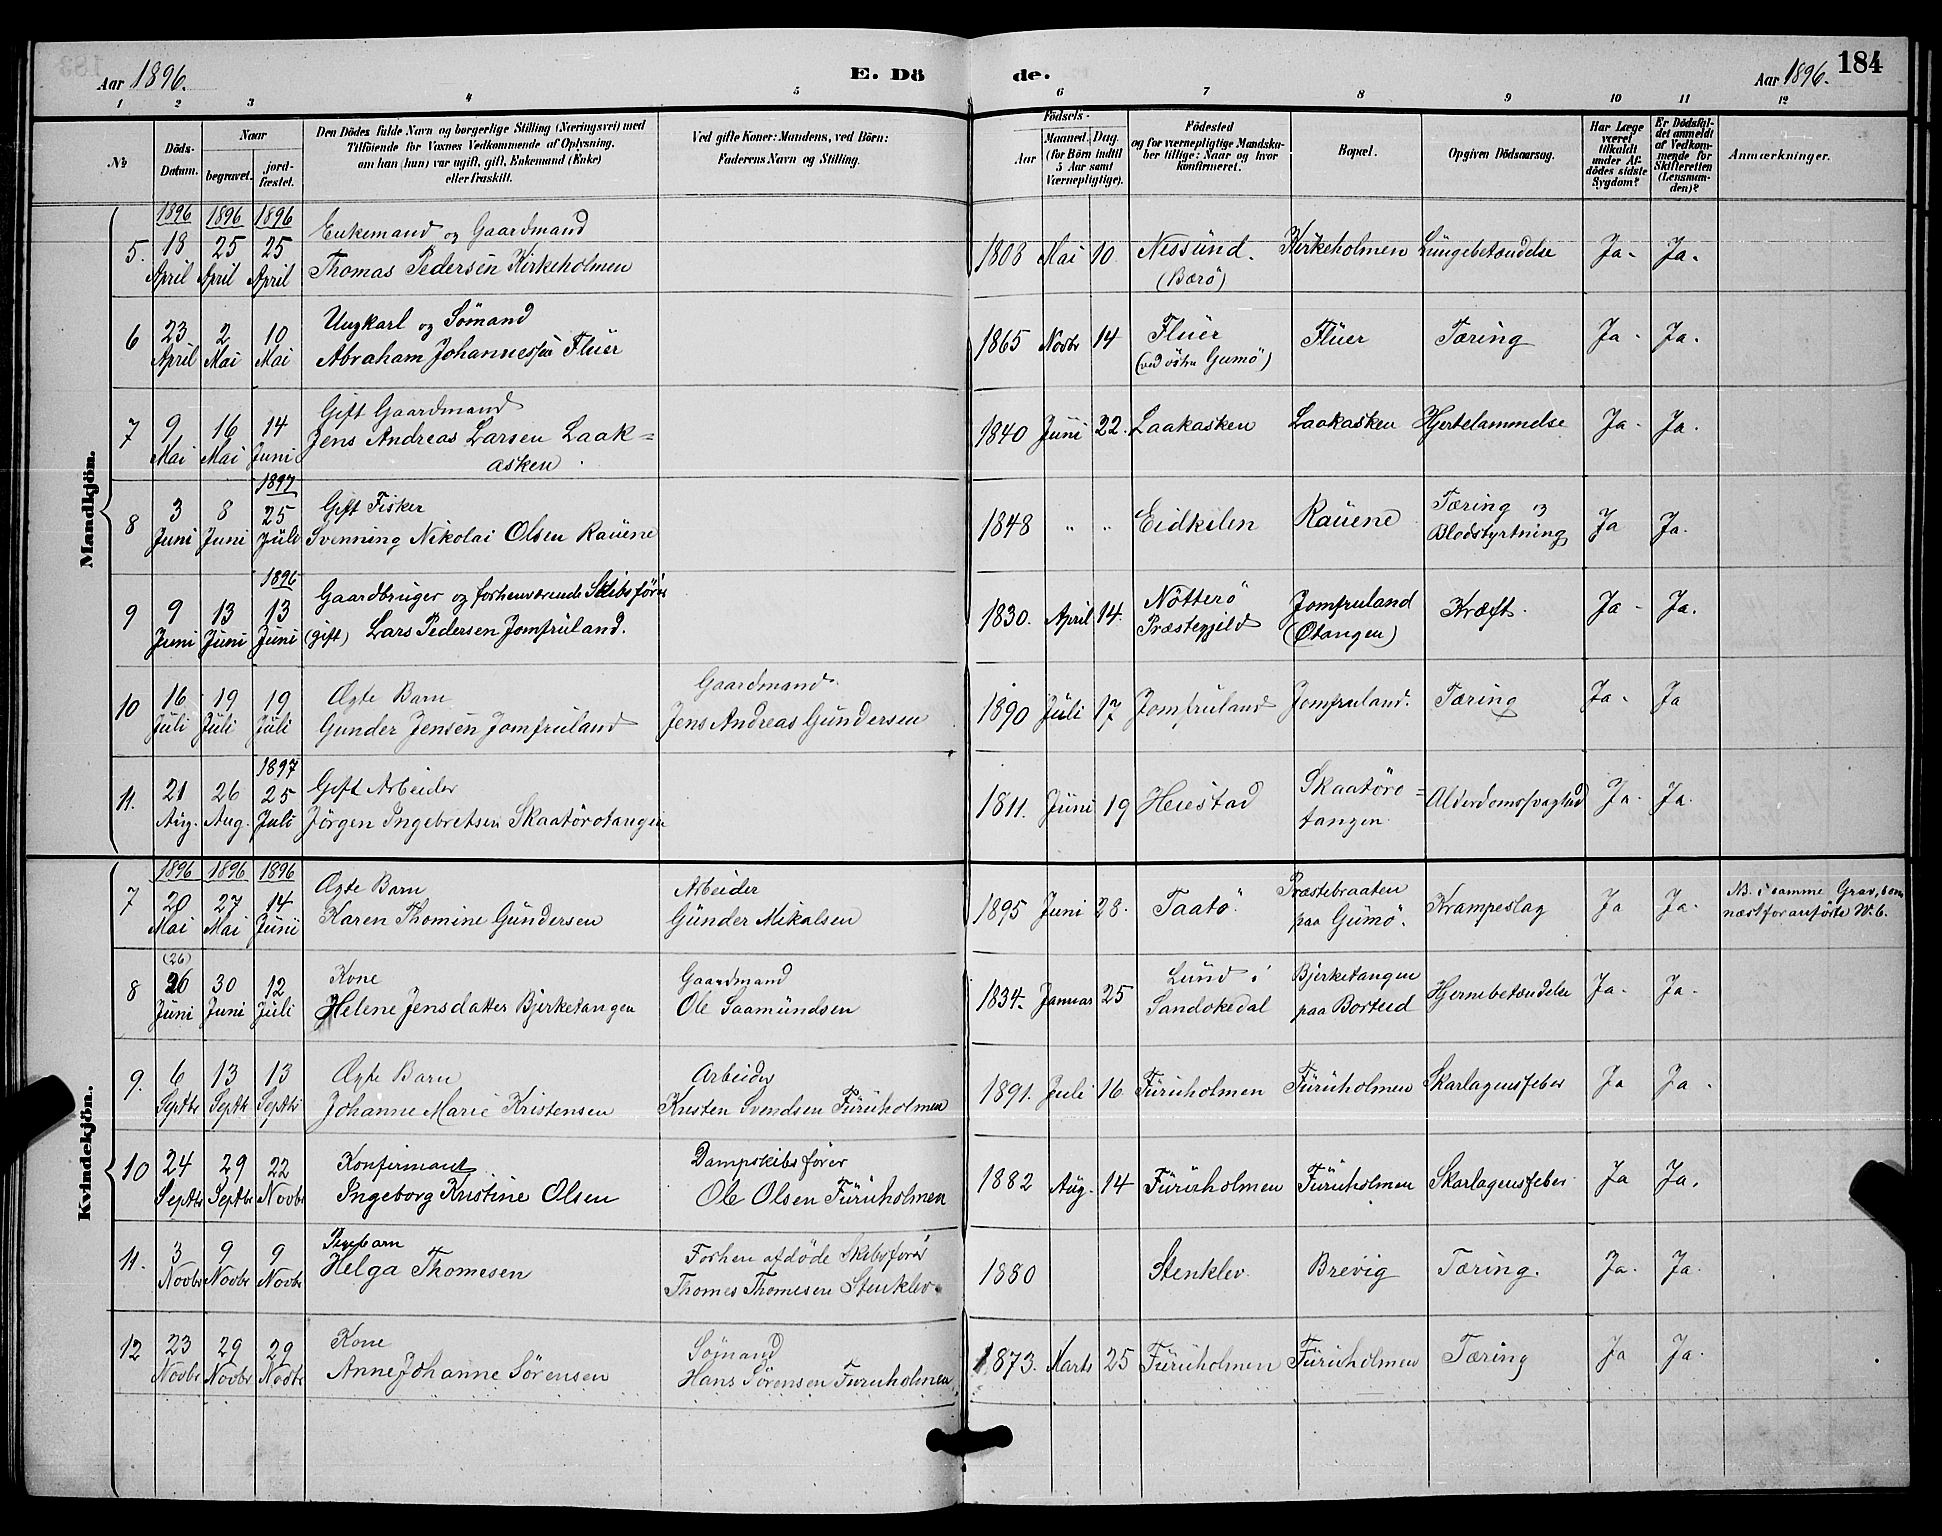 184
Aar 1896.
E. Dö de.
Aar 1896.
1 2 3 4 5 6 7 8 9 10 11 12
No
Döds-Datum.
Naar
begravet.
jord-fæstet.
Den Dödes fulde Navn og borgerlige Stilling (Næringsvei) med
Tilföiende for Voxnes Vedkommende af Oplysning,
om han (hun) var ugift, gift, Enkemand (Enke)
eller fraskilt.
Ved gifte Koner: Mandens, ved Börn:
Faderens Navn og Stilling.
Födsels-
Aar
Maaned. Dag.
(for Börn indtil
5 Aar samt
Værnepligtige).
Födested
og for værnepligtige Mandska-
ber tillige: Naar og hvor
konfirmeret.
Bopæl.
Opgiven Dödsaarsag.
Har Læge
været
tilkaldt
under Af-
dödes sidste
Sygdom?
Er Dödsfal-
det anmeldt
af Vedkom-
mende for
Skifteretten
(Lensman-
den)?
Anmærkninger.
Mandkjön.
1896 1896 1896
5. 18 April 25 April 25 April
Enkemand og Gaardmand
Thomas Pedersen Kirkeholmen
1808 Mai 10 Nessund. (Bærö) Kirkeholmen Lungebetændelse Ja. Ja.
6 23 April 2 Mai 10 Mai
Ungkarl og Sömand
Abraham Johannessen Fluer
1865 Novbr 14 Fluer (ved östre Gumö) Fluer Tæring Ja. Ja.
7 9 Mai 16 Mai 14 Juni
Gift Gaardmand
Jens Andreas Larsen Laak=
asken.
1840 Juni 22. Laakasken Laakasken Hjertelammelse Ja. Ja.
1897
8 3 Juni 8 Juni 25 Juli
Gift Fisker
Svenning Nikolai Olsen Rauene
1848 " " Eidkilen Rauene Tæring og Blodstyrtning Ja Ja.
1896
9 9 Juni 13 Juni 13 Juni
Gaardbruger og forhenværende Skibsförer
(gift) Lars Pedersen Jomfruland.
1830. April 14. Nötterö Præstegjeld Jomfruland (Øtangen) Kræft. Ja. Ja.
10 16 Juli 19 Juli 19 Juli
Ægte Barn
Gunder Jensen Jomfruland
Gaardmand
Jens Andreas Gundersen
1890 Juli 17 Jomfruland Jomfruland. Tæring Ja. Ja
1897
11. 21 Aug. 26 Aug. 25 Juli
Gift Arbeider
Jörgen Ingebretsen Skaatörotangen
1811. Juni 19 Heiestad Skaatörö=tangen Alderdomssvaghed Ja. Ja.
Kvindekjön.
1896 1896 1896
7 20 Mai 27 Mai 14 Juni
Ægte Barn
Karen Thomine Gundersen
Arbeider
Gunder Mikalsen
1895 Juni 28. Taatö. Præstebraaten paa Gumö. Krampeslag Ja Ja.
NB. i samme Grav, som
næstforanförte No. 6.
8 (26) 26 Juni 30 Juni 12 Juli
Kone
Helene Jensdatter Bjerketangen
Gaardmand
Ole Saamundsen
1834. Januar 25 Lund i Sandökedal Bjerketangen paa Borteid Hjernebetændelse Ja. Ja.
9. 6 Septbr 13 Septbr 13 Septbr
Ægte Barn
Johanne Marie Kristensen
Arbeider
Kristen Svendsen Furuholmen
1891. Juli 16 Furuholmen Furuholmen Skarlagensfeber Ja Ja.
10 24 Septbr 29 Septbr 22 Novbr
Konfirmant
Ingeborg Kristine Olsen
Dampskibsförer
Ole Olsen Furuholmen
1882 Aug. 14 Furuholmen Furuholmen Skarlagensfeber Ja Ja.
11. 3 Novbr 9 Novbr 9 Novbr
Pigebarn
Helga Thomesen
Forhen afdöde Skibsförer
Thomes Thomesen Stenklev.
1880 Stenklev. Brevig Tæring. Ja. Ja.
12 23 Novbr 29 Novbr 29 Novbr
Kone
Anne Johanne Sörensen
Sömand
Hans Sörensen Furuholmen
1873. Marts 25 Furuholmen Furuholmen Tæring Ja Ja.